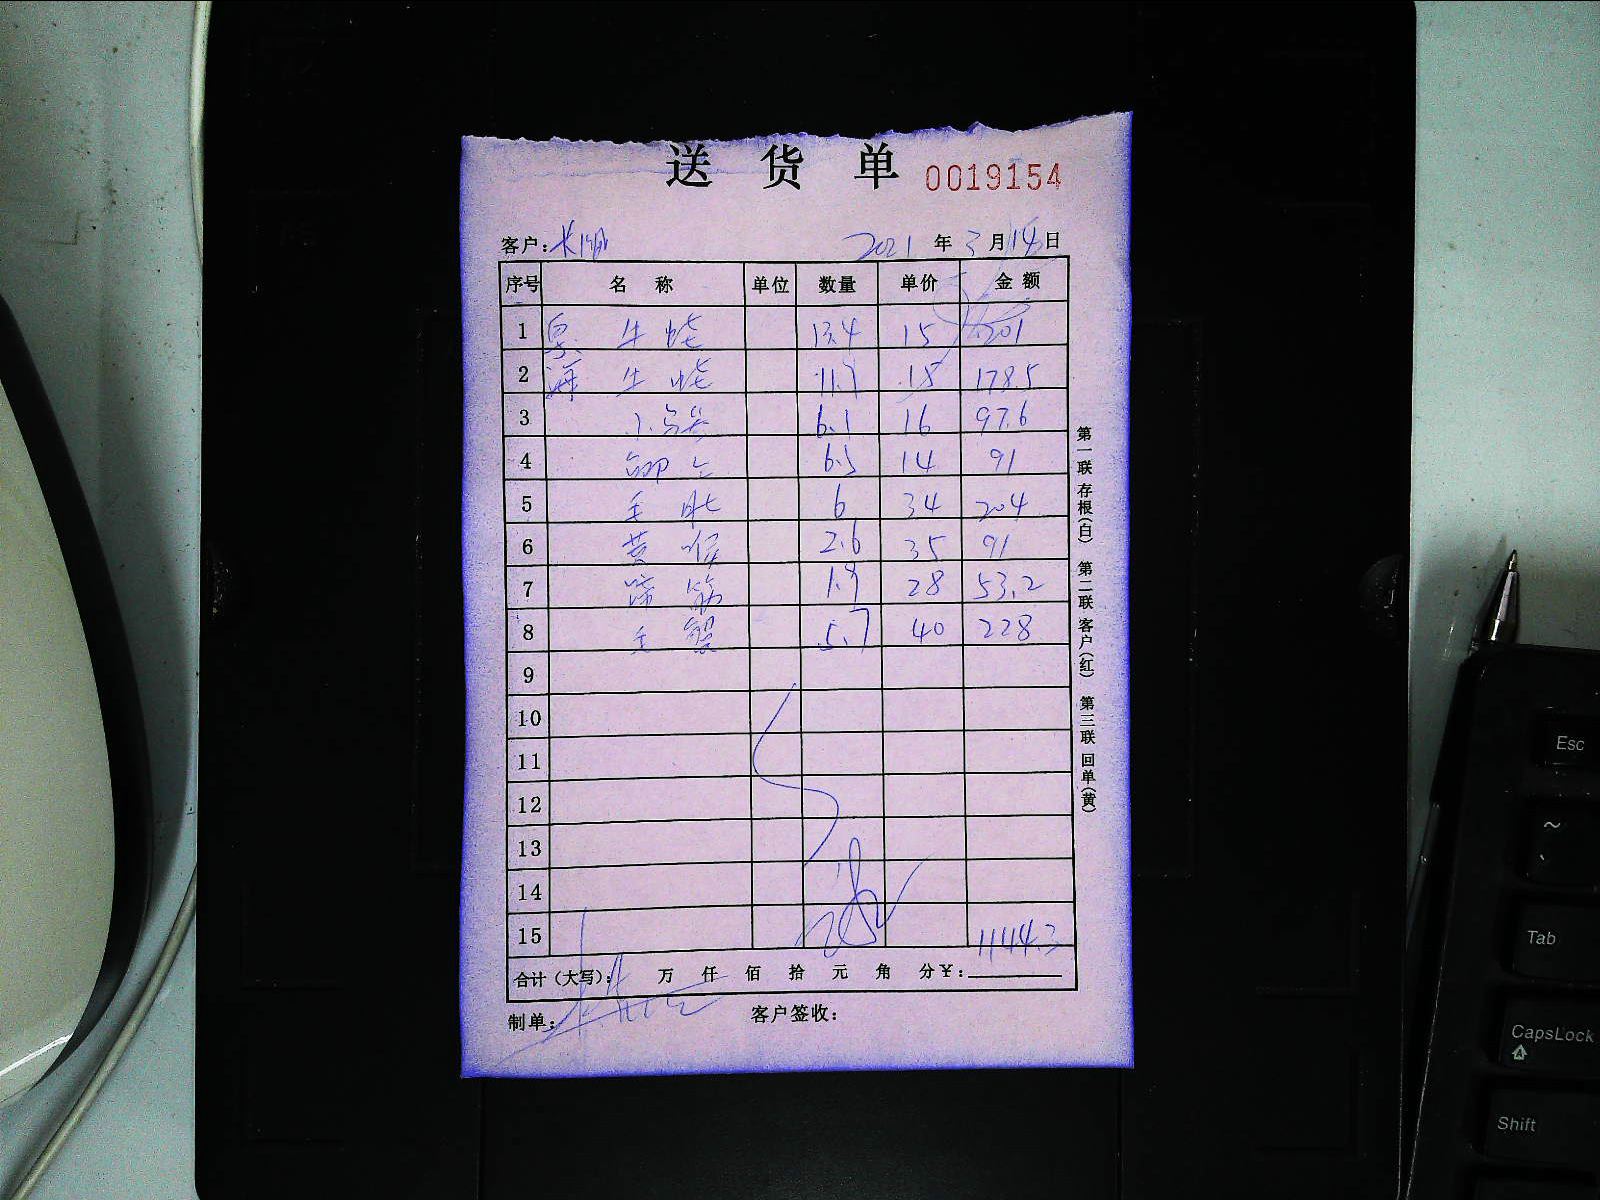 送货单 0019154
客户: 2021 年 3 月 14 日
序号 名称 单位 数量 单价 金额
1 牛蛙 13.4 15 201
2 牛蛙 11.9 15 178.5
3 6.1 16 97.6
4 6.5 14 91
5 6 34 204
6 黄喉 2.6 35 91
7 蹄筋 1.9 28 53.2
8 王蟹 5.7 40 228
9
10
11
12
13
14
15 1144.3
合计(大写): 万 仟 佰 拾 元 角 分¥:
制单: 客户签收:
第一联 存根(白) 第二联 客户(红) 第三联 回单(黄)
Esc
~
Tab
CapsLock
Shift